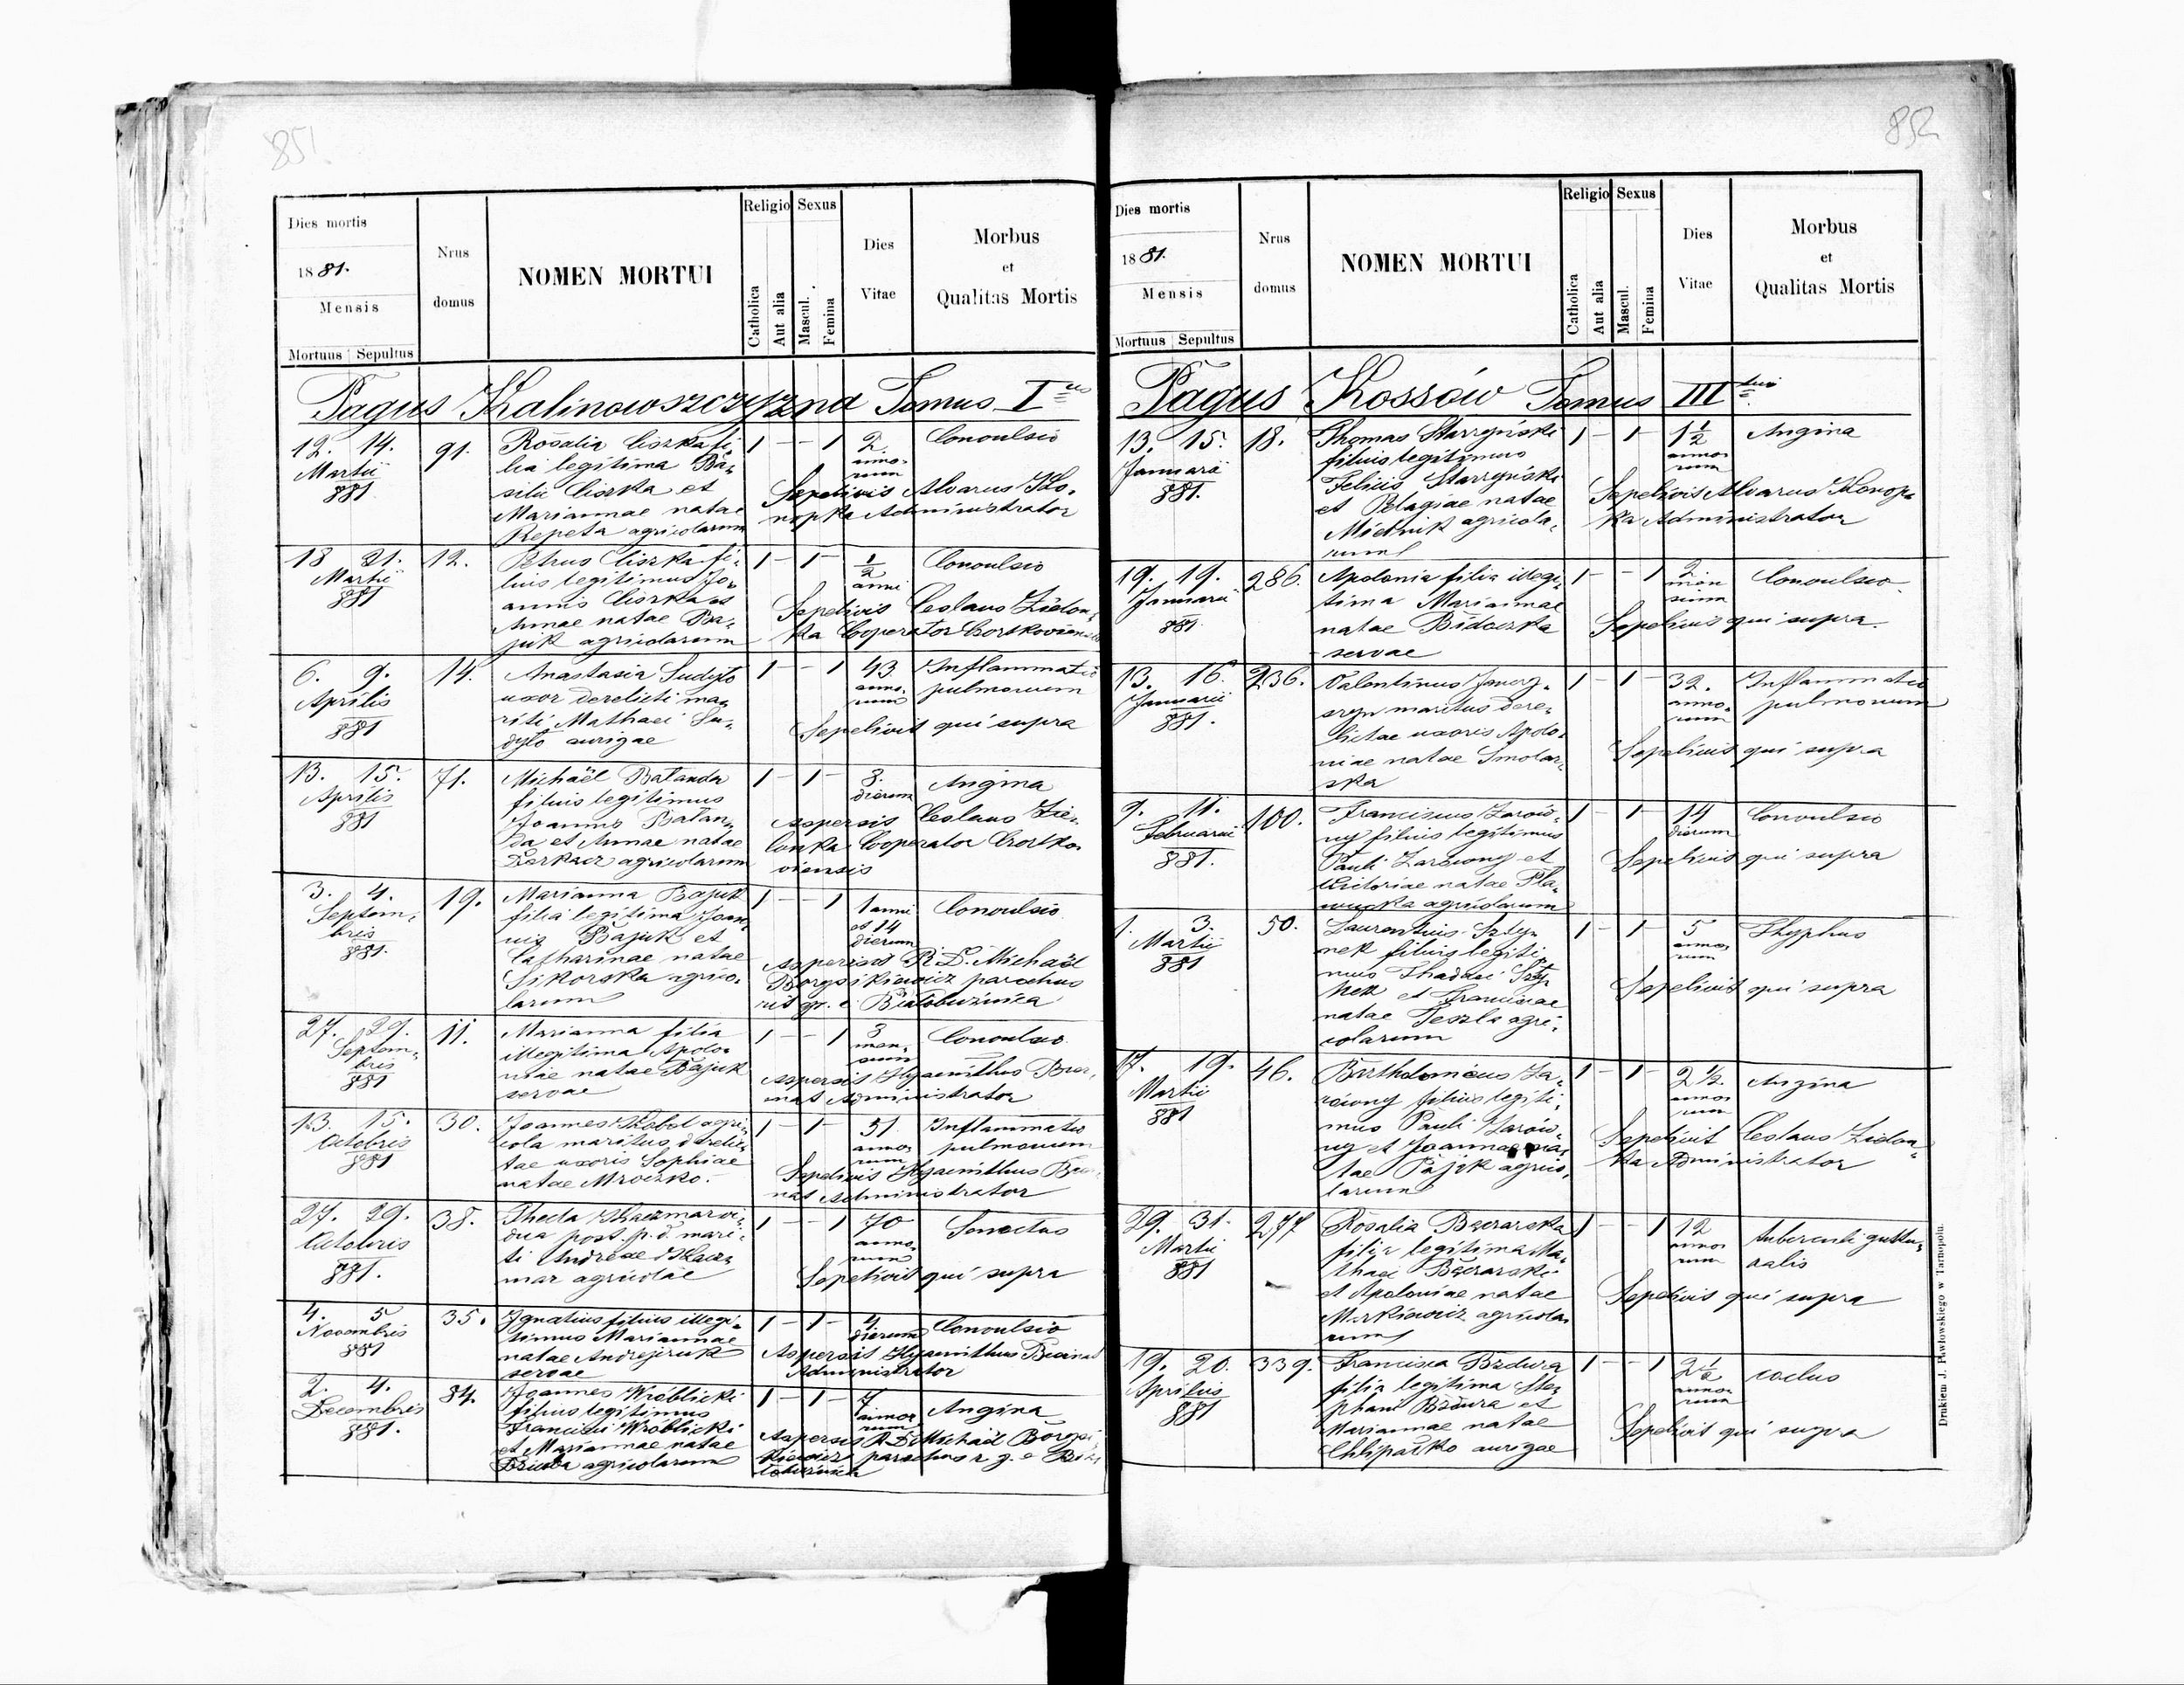 851
Dies mortis
1881.
Mensis
Mortuus Sepultus
Nrus
domus
NOMEN MORTUI
Religio
Catholica
Aut alia
Sexus
Mascul.
Femina
Dies
Vitae
Morbus
et
Qualitas Mortis
Pagus Kalinowszczyzna Tomus I
12. 14.
Martii
881
91.
Rosalia Ciszka fi-
lia legitima Ba-
silii Ciszka et
Mariannae natae
Repeta agricolarum
1 - - 1
2
anno-
rum
Convulsio
Sepelivit Alvarus Ko-
nopka Administrator
18 21.
Martii
881
12.
Petrus Ciszka fi-
lius legitimus Jo-
annis Ciszka et
Annae natae Ba-
juk agricolarum
1 - 1 -
1/2
anni
Convulsio
Sepelivit Ceslaus Zielon-
ka Cooperator
6. 9.
Aprilis
881
14.
Anastasia Sudyto
uxor derelicti ma-
riti Mathaei Su-
dyto aurigae
1 - - 1
43
anno-
rum
Inflammatio
pulmonum
Sepelivit qui supra
13. 15.
Aprilis
881
71.
Michaël Batanda
filius legitimus
Joannis Batan-
da et Annae natae
Derkacz agricolarum
1 - 1 -
8.
dierum
Angina
Aspersit Ceslaus Zie-
lonka Cooperator Czortko-
viensis
3. 4.
Septem-
bris
881.
19.
Marianna Bajuk
filia legitima Joan-
nis Bajuk et
Catharinae natae
Sikorska agrico-
larum
1 - - 1
1 anni
et 14
dierum
Convulsio
Aspersit R. D. Michaël
parochus
rit. gr. e Białobuznica
27. 29.
Septem-
bris
881
11.
Marianna filia
illegitima Apolo-
niae natae Bajuk
servae
1 - - 1
3
men-
sium
Convulsio
Aspersit Hyacinthus
Administrator
13. 15.
Octobris
881
30.
Joannes Kobel agri-
cola maritus derelic-
tae uxoris Sophiae
natae Mroczko.
1 - 1 -
51
anno-
rum
Inflammatio
pulmonum
Sepelivit Hyacinthus
Administrator
27. 29.
Octobris
881.
38.
Thecla Kaczmar vi-
dua post. p. d. mari-
ti Andreae Kacz-
mar agricolae
1 - - 1
70
anno-
rum
Senectus
Sepelivit qui supra
4. 5
Novembris
881
35.
Ignatius filius illegi-
timus Mariannae
natae Andrejczuk
servae
1 - 1 -
4
dierum
Convulsio
Aspersit Hyacinthus
Administrator
2. 4.
Decembris
881.
84.
Joannes Wróblicki
filius legitimus
Francisci Wróblicki
et Mariannae natae
Dziuba agricolarum
1 - 1 -
7
annor
rum
Angina
Aspersit R. D. Michaël
parochus r. g. e
852
Dies mortis
1881.
Mensis
Mortuus Sepultus
Nrus
domus
NOMEN MORTUI
Religio
Catholica
Aut alia
Sexus
Mascul.
Femina
Dies
Vitae
Morbus
et
Qualitas Mortis
Pagus Kossów Tomus III
13. 15.
Januarii
881.
18.
Thomas Starzyński
filius legitimus
Felicis Starzyński
et Pelagiae natae
Mielnik agricola-
rum
1 - 1 -
1 1/2
anno
rum
Angina
Sepelivit Alvarus Konop-
ka Administrator
19. 19.
Januarii
881
286.
Apolonia filia illegi-
tima Mariannae
natae Bidoczka
servae
1 - - 1
2.
men
sium
Convulsio
Sepelivit qui supra.
13. 16.
Januarii
881.
236.
Valentinus
maritus dere-
lictae uxoris Apolo-
niae natae Smolar-
ska
1 - 1 -
32.
anno-
rum
Inflammatio
pulmonum
Sepelivit qui supra
9. 11.
Februarii
881.
100.
Franciscus Zarów-
ny filius legitimus
Pauli Zarówny et
Victoriae natae Pla-
wucka agricolarum
1 - 1 -
14
dierum
Convulsio
Sepelivit qui supra
1. 3.
Martii
881
50.
Laurentius Szty-
nek filius legiti-
mus Thadaei Szty-
nek et Franciscae
natae Teszla agri-
colarum
1 - 1 -
5
anno
rum
Thyphus
Sepelivit qui supra
17. 19.
Martii
881
46.
Bartholomeus Za-
równy filius legiti-
mus Pauli Zarów-
ny et Joannae na-
tae Pajik agrico-
larum
1 - 1 -
2 1/2.
anno
rum
Angina
Sepelivit Ceslaus Zielon-
ka Administrator
29. 31.
Martii
881
277
Rosalia Bęcrarska
filia legitima Ma-
thaei Bęcrarski
et Apoloniae natae
Markiewicz agricola-
rum
1 - - 1
12
anno
rum
Tuberculi guttu-
ralis
Sepelivit qui supra
19. 20.
Aprilis
881
339.
Francisca Bzdura
filia legitima Ste-
phani Bzdura et
Mariannae natae
Chliparko aurigae
1 - - 1
2 1/2
anno-
rum
Sepelivit qui supra
Drukiem J. Pawłowskiego w Tarnopolu.